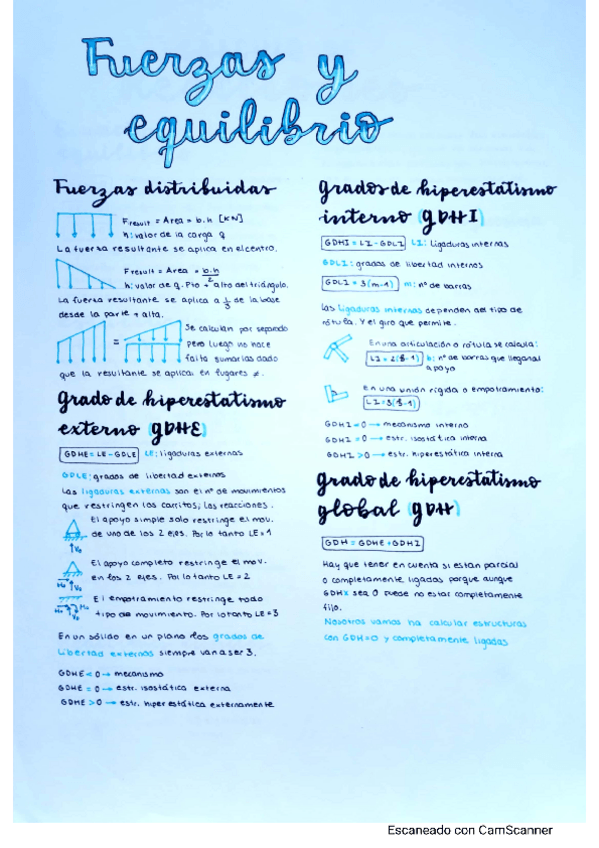 Fuerzas y
equilibrio
Fuerzas distribuidas
Fresult = Area = b.h [KN]
h: valor de la carga q
La fuerza resultante se aplica en el centro.
Fresult = Area = b.h/2
h: valor de q. Pto + alto del triángulo.
La fuerza resultante se aplica a 1/3 de la base
desde la parte + alta.
=
Se calculan por separado
pero luego no hace
falta sumarlas dado
que la resultante se aplica en lugares ≠.
Grado de hiperestatismo
externo (GDHE)
GDHE = LE - GDLE LE: ligaduras externas
GDLE: grados de libertad externos
Las ligaduras externas son el nº de movimientos
que restringen los carritos, las reacciones.
El apoyo simple solo restringe el mov.
de uno de los 2 ejes. Por lo tanto LE = 1
El apoyo completo restringe el mov.
en los 2 ejes. Por lo tanto LE = 2
El empotramiento restringe todo
tipo de movimiento. Por lo tanto LE = 3
En un sólido en un plano los grados de
libertad externos siempre van a ser 3.
GDHE < 0 → mecanismo
GDHE = 0 → estr. isostática externa
GDHE > 0 → estr. hiperestática externamente
Grados de hiperestatismo
interno (GDHI)
GDHI = LI - GDLI LI: Ligaduras internas
GDLI: grados de libertad internos
GDLI = 3(m-1) m: nº de barras
Las ligaduras internas dependen del tipo de
rótula. Y el giro que permite.
En una articulación o rótula se calcula:
LI = 2(b-1) b: nº de barras que llegan al
apoyo
En una unión rígida o empotramiento:
LI = 3(b-1)
GDHI < 0 → mecanismo interno
GDHI = 0 → estr. isostática interna
GDHI > 0 → estr. hiperestática interna
Grado de hiperestatismo
global (GDH)
GDH = GDHE + GDHI
Hay que tener en cuenta si estan parcial
o completamente ligadas porque aunque
GDHX sea 0 puede no estar completamente
fijo.
Nosotros vamos ha calcular estructuras
con GDH=0 y completamente ligadas
Escaneado con CamScanner